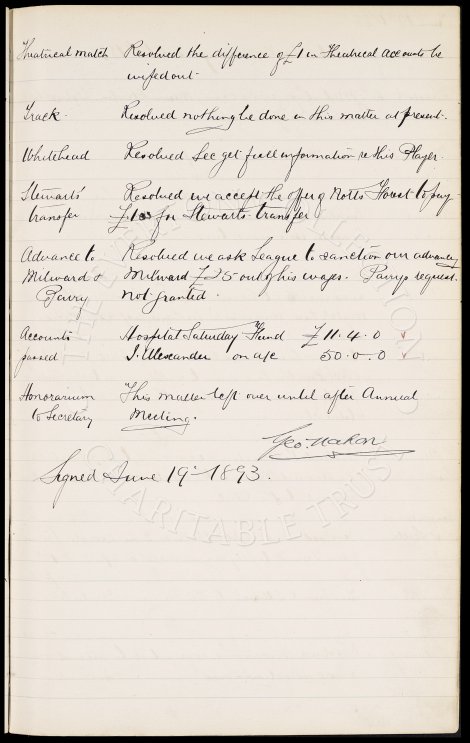 Theatrical Match Resolved the difference of £1 in Theatrical Accounts be
wiped out.
Track. Resolved nothing be done in this matter at present.
Whitehead Resolved Sec get full information re this Player.
Stewarts' Resolved we accept the offer of Notts Forest to pay
transfer £100 for Stewarts transfer
Advance to Resolved we ask League to sanction our advancing
Milward & Milward £25 out of his wages. Parrys request
Parry not granted.
Accounts Hospital Saturday Fund £11.4.0
passed J. Alexander on a/c 50.0.0
Honorarium This matter left over until after Annual
to Secretary Meeting.
Geo. Mahon
Signed June 19th 1893.
THE EVERTON COLLECTION
CHARITABLE TRUST